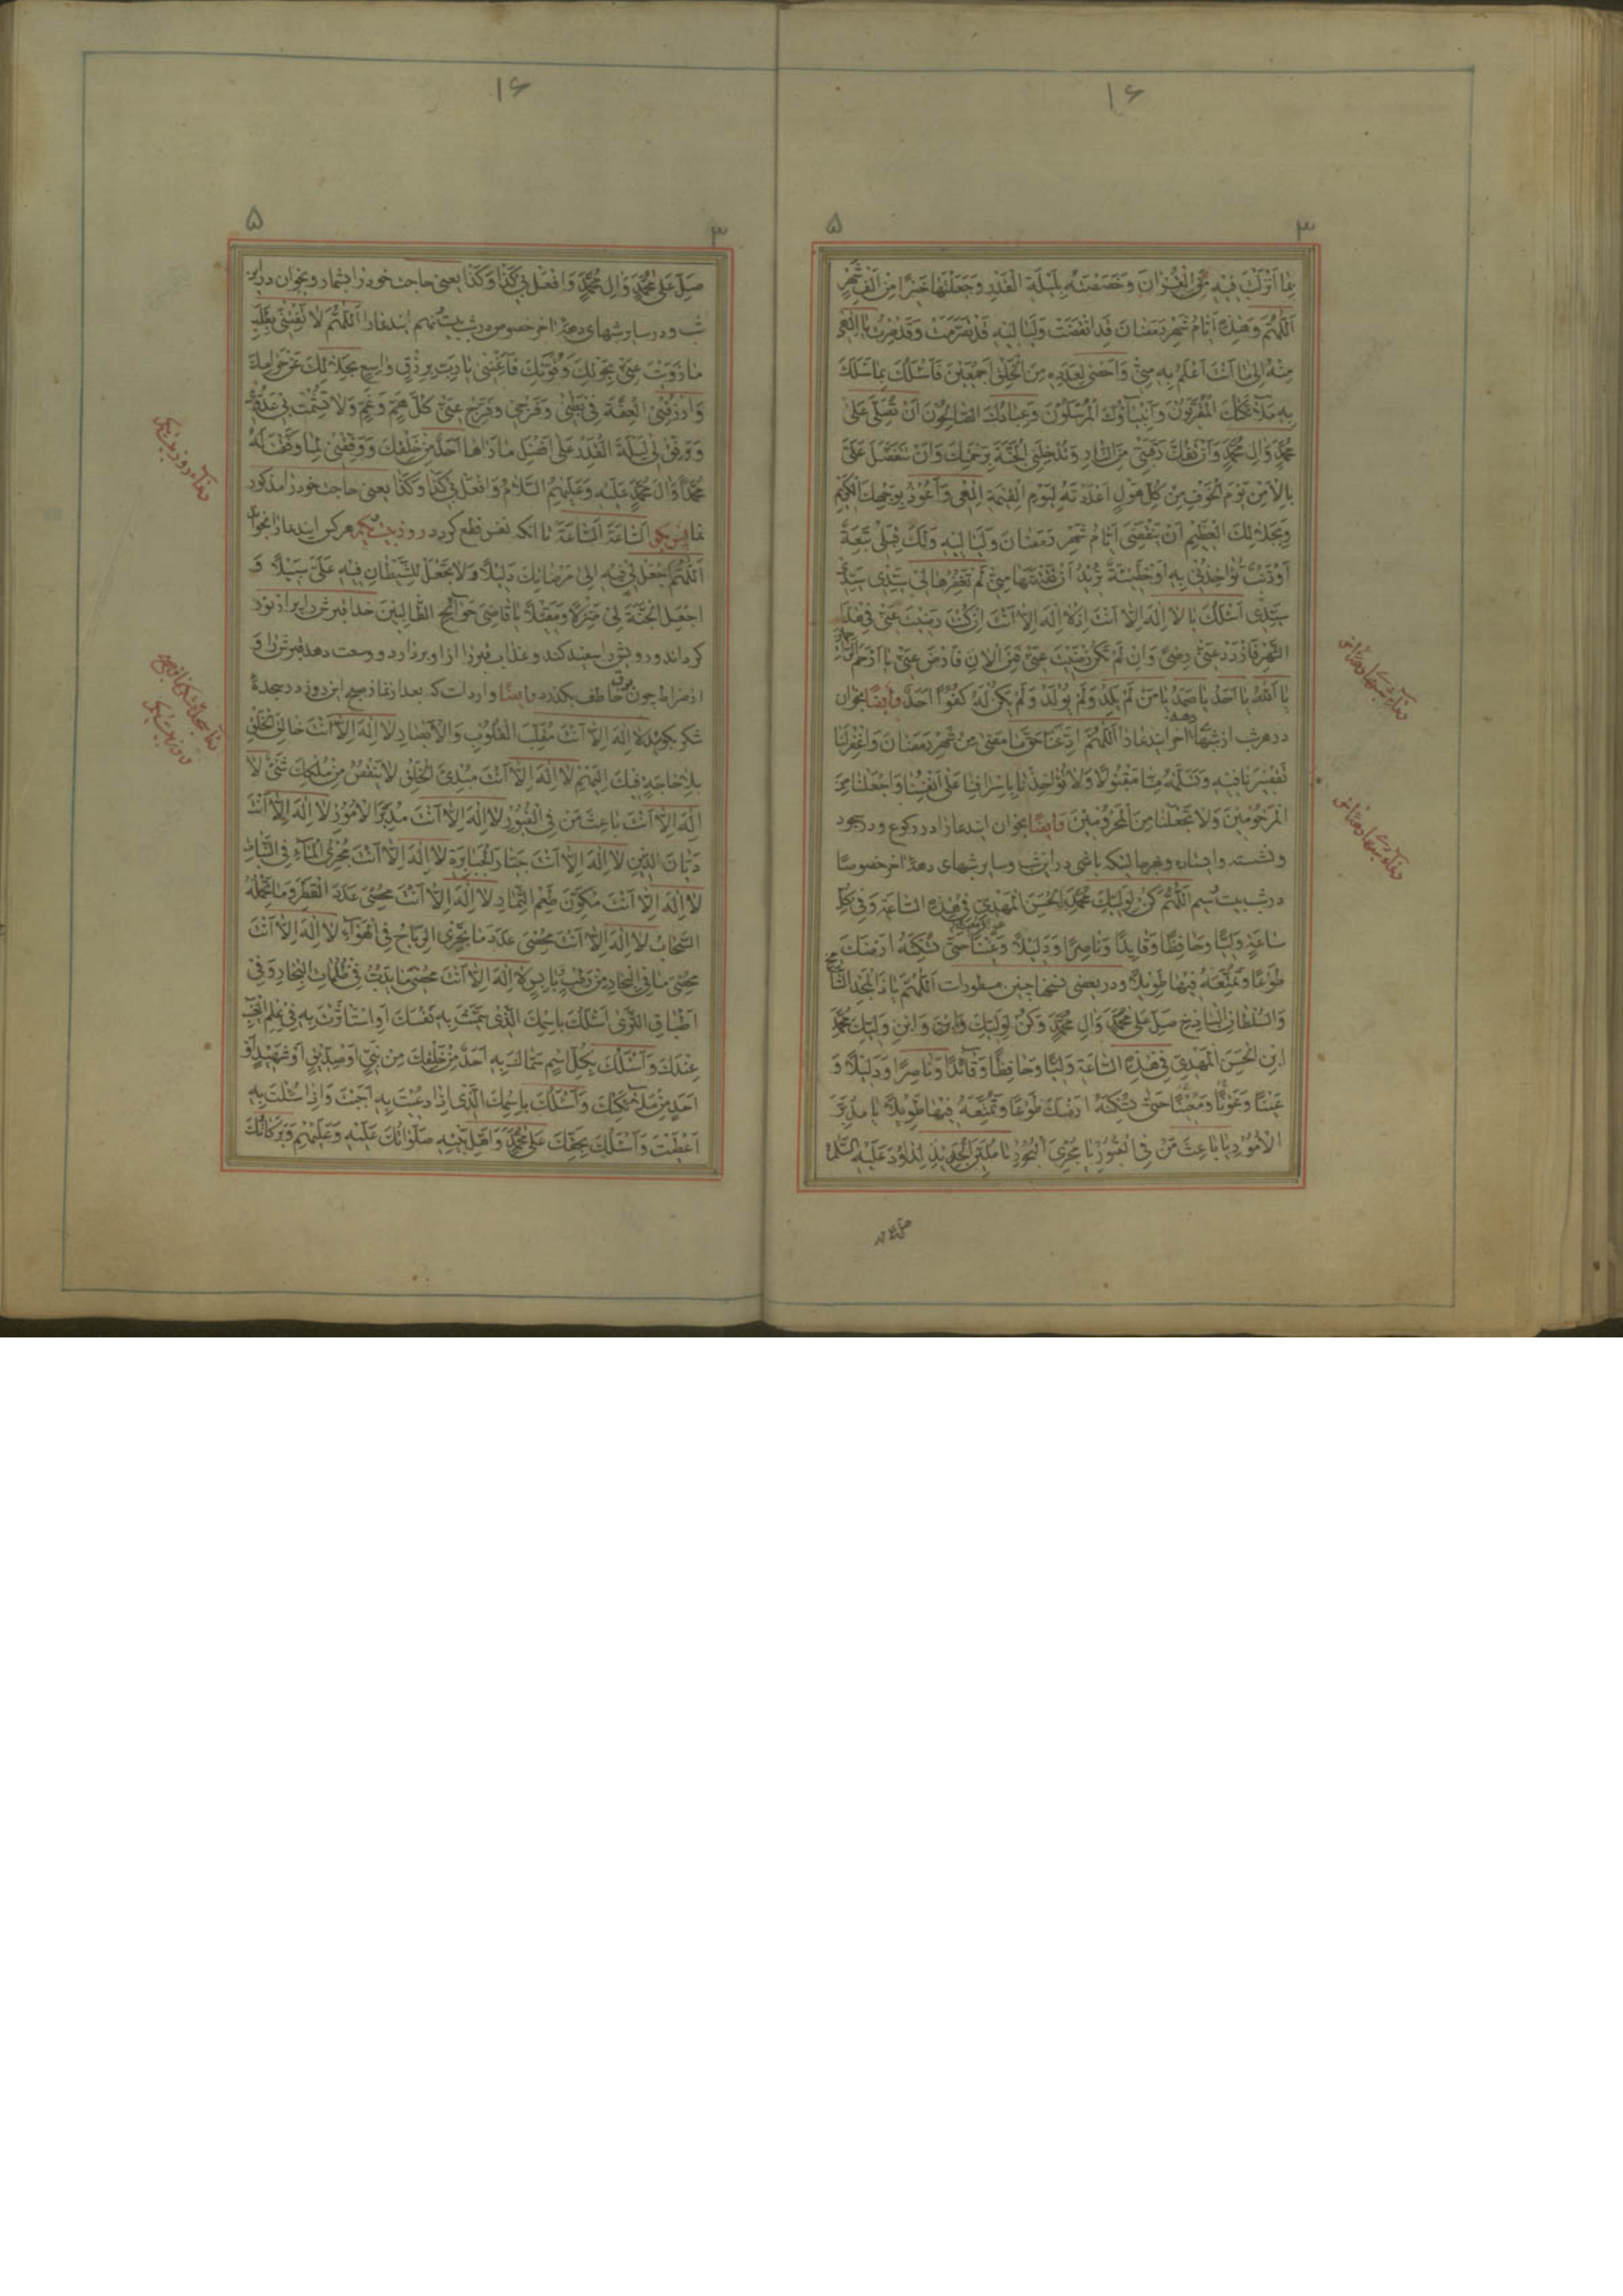 ۱۶
۳
۵
بِمَا اَنْزَلْتَ فِيهِ مِنَ الْقُرْاٰنِ وَخَصَصْتَهُ بِلَيْلَةِ الْقَدْرِ وَجَعَلْتَهَا خَيْرًا مِنْ اَلْفِ شَهْرٍ
اَللّٰهُمَّ وَهٰذِهِ اَيَّامُ شَهْرِ رَمَضَانَ قَدِ انْقَضَتْ وَلَيَالِيهِ قَدْ تَصَرَّمَتْ وَقَدْ صِرْتُ يَا اِلٰهِى
مِنْهُ اِلٰى مَا اَنْتَ اَعْلَمُ بِهِ مِنِّى وَاَحْصٰى لِعَدَدِهِ مِنَ الْخَلْقِ اَجْمَعِينَ فَاَسْئَلُكَ بِمَا سَئَلَكَ
بِهِ مَلٰٓئِكَتُكَ الْمُقَرَّبُونَ وَاَنْبِيَآؤُكَ الْمُرْسَلُونَ وَعِبَادُكَ الصَّالِحُونَ اَنْ تُصَلِّىَ عَلٰى
مُحَمَّدٍ وَاٰلِ مُحَمَّدٍ وَاَنْ تَفُكَّ رَقَبَتِى مِنَ النَّارِ وَتُدْخِلَنِى الْجَنَّةَ بِرَحْمَتِكَ وَاَنْ تَتَفَضَّلَ عَلَىَّ
بِالْاَمْنِ يَوْمَ الْخَوْفِ مِنْ كُلِّ هَوْلٍ اَعْدَدْتَهُ لِيَوْمِ الْقِيٰمَةِ اِلٰهِى وَاَعُوذُ بِوَجْهِكَ الْكَرِيمِ
وَبِجَلَالِكَ الْعَظِيمِ اَنْ يَنْقَضِىَ اَيَّامُ شَهْرِ رَمَضَانَ وَلَيَالِيهِ وَلَكَ قِبَلِى تَبِعَةٌ
اَوْ ذَنْبٌ تُؤَاخِذُنِى بِهِ اَوْ خَطِيئَةٌ تُرِيدُ اَنْ تَقْتَصَّهَا مِنِّى لَمْ تَغْفِرْهَا لِى سَيِّدِى سَيِّدِى
سَيِّدِى اَسْئَلُكَ يَا لَا اِلٰهَ اِلَّا اَنْتَ اِذْ لَا اِلٰهَ اِلَّا اَنْتَ اِنْ كُنْتَ رَضِيتَ عَنِّى فِى هٰذَا
الشَّهْرِ فَازْدَدْ عَنِّى رِضًى وَاِنْ لَمْ تَكُنْ رَضِيتَ عَنِّى فَمِنَ الْاٰنَ فَارْضَ عَنِّى يَا اَرْحَمَ الرَّاحِمِينَ
يَا اَللّٰهُ يَا اَحَدُ يَا صَمَدُ يَا مَنْ لَمْ يَلِدْ وَلَمْ يُولَدْ وَلَمْ يَكُنْ لَهُ كُفُوًا اَحَدٌ وايضًا بخوان
در هر شب از شبهاى دهه آخر ايندعا را اَللّٰهُمَّ اَدِّ عَنَّا حَقَّ مَا مَضٰى مِنْ شَهْرِ رَمَضَانَ وَاغْفِرْ لَنَا
تَقْصِيرَنَا فِيهِ وَتَسَلَّمْهُ مِنَّا مَقْبُولًا وَلَا تُؤَاخِذْنَا بِاِسْرَافِنَا عَلٰى اَنْفُسِنَا وَاجْعَلْنَا مِنَ
الْمَرْحُومِينَ وَلَا تَجْعَلْنَا مِنَ الْمَحْرُومِينَ وايضًا بخوان ايندعا را در ركوع و در سجود
و نشسته و ايستاده و بهر حاليكه باشى در اين شب و ساير شبهاى دهه آخر خصوصًا
در شب بيست سيم اَللّٰهُمَّ كُنْ لِوَلِيِّكَ مُحَمَّدِ بْنِ الْحَسَنِ الْمَهْدِىِّ فِى هٰذِهِ السَّاعَةِ وَفِى كُلِّ
سَاعَةٍ وَلِيًّا وَحَافِظًا وَقَايِدًا وَنَاصِرًا وَدَلِيلًا وَعَيْنًا حَتّٰى تُسْكِنَهُ اَرْضَكَ
طَوْعًا وَتُمَتِّعَهُ فِيهَا طَوِيلًا و در بعضى نسخها چنين مسطورات اَللّٰهُمَّ يَا ذَا الْمَجْدِ الشَّامِخِ
وَالسُّلْطَانِ الْبَاذِخِ صَلِّ عَلٰى مُحَمَّدٍ وَاٰلِ مُحَمَّدٍ وَكُنْ لِوَلِيِّكَ وَابْنِ وَلِيِّكَ مُحَمَّدِ
ابْنِ الْحَسَنِ الْمَهْدِىِّ فِى هٰذِهِ السَّاعَةِ وَلِيًّا وَحَافِظًا وَقَائِدًا وَنَاصِرًا وَدَلِيلًا وَ
عَيْنًا وَعَوْنًا وَمُعِينًا حَتّٰى تُسْكِنَهُ اَرْضَكَ طَوْعًا وَتُمَتِّعَهُ فِيهَا طَوِيلًا يَا مُدَبِّرَ
الْاُمُورِ يَا بَاعِثَ مَنْ فِى الْقُبُورِ يَا مُجْرِىَ الْبُحُورِ يَا مُلَيِّنَ الْحَدِيدِ لِدَاوُدَ عَلَيْهِ السَّلَامُ
۱۶
۳
۵
صَلِّ عَلٰى مُحَمَّدٍ وَاٰلِ مُحَمَّدٍ وَافْعَلْ بِى كَذَا وَكَذَا يعنى حاجت خود را بشمار و بخوان در اين
شب و در ساير شبهاى دهه آخر خصوص در شب بيست نهم ايندعا را اَللّٰهُمَّ لَا تُعَنِّنِى بِطَلَبِ
مَا زَوَيْتَ عَنِّى بِحَوْلِكَ وَقُوَّتِكَ فَاَغْنِنِى يَا رَبِّ بِرِزْقٍ وَاسِعٍ بِحَلَالِكَ عَنْ حَرَامِكَ
وَارْزُقْنِى الْعِفَّةَ فِى بَطْنِى وَفَرْجِى وَفَرِّجْ عَنِّى كُلَّ هَمٍّ وَغَمٍّ وَلَا تُشْمِتْ بِى عَدُوِّى
وَوَفِّقْ لِى لَيْلَةَ الْقَدْرِ عَلٰى اَفْضَلِ مَا رَاٰهَا اَحَدٌ مِنْ خَلْقِكَ وَوَفِّقْنِى لِمَا وَفَّقْتَ لَهُ
مُحَمَّدًا وَاٰلَ مُحَمَّدٍ عَلَيْهِ وَعَلَيْهِمُ السَّلَامُ وَافْعَلْ بِى كَذَا وَكَذَا يعنى حاجت خود را مذكور
نما پس بگو اَلسَّاعَةَ اَلسَّاعَةَ تا آنكه نفس قطع گردد در روز بيست يكم هر كس ايندعا را بخواند
اَللّٰهُمَّ اجْعَلْ لِى فِيهِ اِلٰى مَرْضَاتِكَ دَلِيلًا وَلَا تَجْعَلْ لِلشَّيْطَانِ فِيهِ عَلَىَّ سَبِيلًا وَ
اجْعَلِ الْجَنَّةَ لِى مَنْزِلًا وَمَقِيلًا يَا قَاضِىَ حَوَآئِجِ الطَّالِبِينَ خدا قبرش را پر از نور
گرداند و رويش را سفيد كند و عذاب قبر را از او بردارد و وسعت دهد قبرش را و
از صراط چون برق خاطف بگذرد وايضًا وارد است كه بعد از نماز صبح اين روز در سجدهٔ
شكر بگويد لَا اِلٰهَ اِلَّا اَنْتَ مُقَلِّبَ الْقُلُوبِ وَالْاَبْصَارِ لَا اِلٰهَ اِلَّا اَنْتَ خَالِقَ الْخَلْقِ
بِلَا حَاجَةٍ فِيكَ اِلَيْهِمْ لَا اِلٰهَ اِلَّا اَنْتَ مُبْدِئَ الْخَلْقِ لَا يَنْقُصُ مِنْ مُلْكِكَ شَىْءٌ لَا
اِلٰهَ اِلَّا اَنْتَ بَاعِثَ مَنْ فِى الْقُبُورِ لَا اِلٰهَ اِلَّا اَنْتَ مُدَبِّرَ الْاُمُورِ لَا اِلٰهَ اِلَّا اَنْتَ
دَيَّانَ الدِّينِ لَا اِلٰهَ اِلَّا اَنْتَ جَبَّارَ الْجَبَابِرَةِ لَا اِلٰهَ اِلَّا اَنْتَ مُجْرِىَ الْمَآءِ فِى النَّبَاتِ
لَا اِلٰهَ اِلَّا اَنْتَ مُكَوِّنَ طَعْمِ الثِّمَارِ لَا اِلٰهَ اِلَّا اَنْتَ مُحْصِىَ عَدَدِ الْقَطْرِ وَمَا تَحْمِلُهُ
السَّحَابُ لَا اِلٰهَ اِلَّا اَنْتَ مُحْصِىَ عَدَدِ مَا تَجْرِى الرِّيَاحُ فِى الْهَوَآءِ لَا اِلٰهَ اِلَّا اَنْتَ
مُحْصِىَ مَا فِى الْبِحَارِ مِنْ رَطْبٍ وَيَابِسٍ لَا اِلٰهَ اِلَّا اَنْتَ مُحْصِىَ مَا يَدِبُّ فِى ظُلُمَاتِ الْبِحَارِ وَفِى
اَطْبَاقِ الثَّرٰى اَسْئَلُكَ بِاسْمِكَ الَّذِى سَمَّيْتَ بِهِ نَفْسَكَ اَوِ اسْتَاْثَرْتَ بِهِ فِى عِلْمِ الْغَيْبِ
عِنْدَكَ وَاَسْئَلُكَ بِكُلِّ اسْمٍ سَمَّاكَ بِهِ اَحَدٌ مِنْ خَلْقِكَ مِنْ نَبِىٍّ اَوْ صِدِّيقٍ اَوْ شَهِيدٍ اَوْ
اَحَدٍ مِنْ مَلٰٓئِكَتِكَ وَاَسْئَلُكَ بِاسْمِكَ الَّذِى اِذَا دُعِيتَ بِهِ اَجَبْتَ وَاِذَا سُئِلْتَ بِهِ
اَعْطَيْتَ وَاَسْئَلُكَ بِحَقِّكَ عَلٰى مُحَمَّدٍ وَاَهْلِ بَيْتِهِ صَلَوَاتُكَ عَلَيْهِ وَعَلَيْهِمْ وَبَرَكَاتُكَ